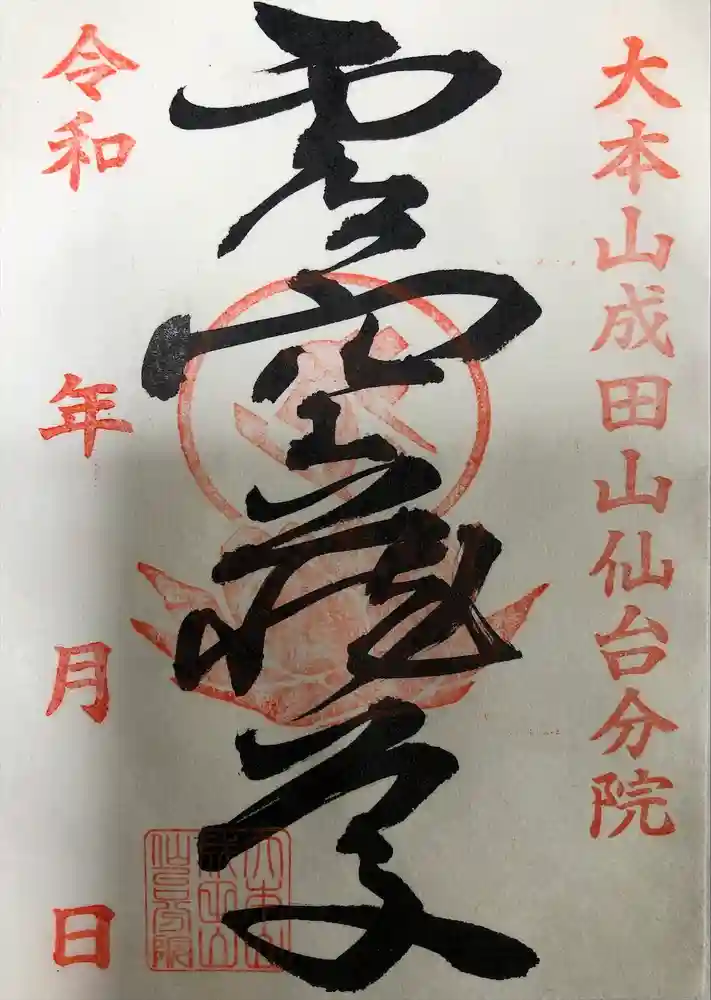 大本山成田山仙台分院
虚空蔵尊
令和 年 月 日
大本山
成田山
仙台分院